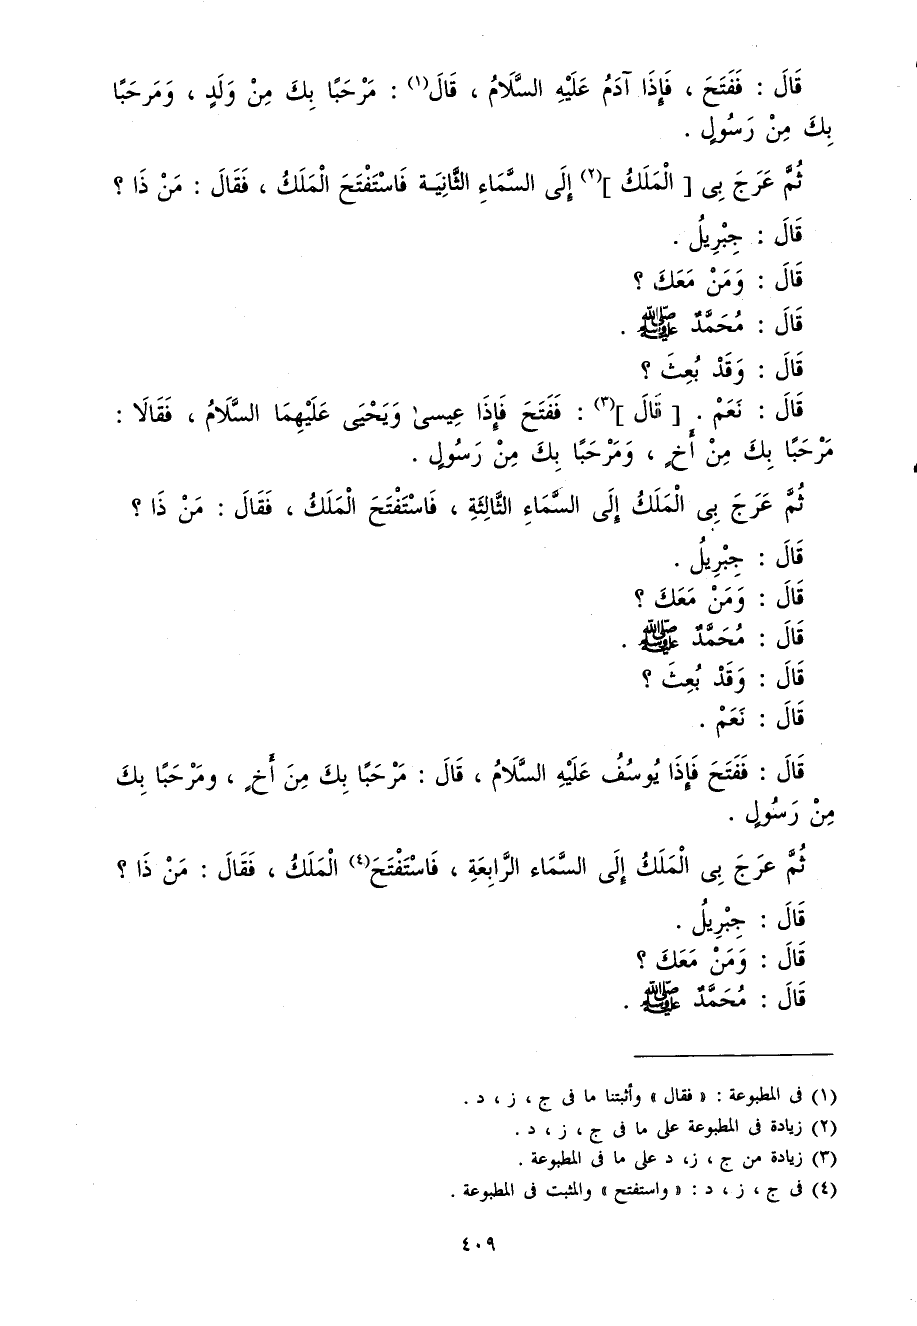 قَالَ : فَفَتَحَ ، فَإِذَا آدَمُ عَلَيْهِ السَّلَامُ ، قَالَ(١) : مَرْحَبًا بِكَ مِنْ وَلَدٍ ، وَمَرحَبًا
بِكَ مِنْ رَسُولٍ .
ثُمَّ عَرَجَ بِى [ الْمَلَكُ ](٢) إِلَى السَّمَاءِ الثَّانِيَة فَاسْتَفْتَحَ الْمَلَكُ ، فَقَالَ : مَنْ ذَا ؟
قَالَ : جِبْرِيلُ .
قَالَ : وَمَنْ مَعَكَ ؟
قَالَ : مُحَمَّدٌ ﷺ .
قَالَ : وَقَدْ بُعِثَ ؟
قَالَ : نَعَمْ . [ قَالَ ](٣) : فَفَتَحَ فَإِذَا عِيسىٰ وَيَحْيَى عَلَيْهِمَا السَّلَامُ ، فَقَالَا :
مَرْحَبًا بِكَ مِنْ أَخٍ ، وَمَرْحَبًا بِكَ مِنْ رَسُولٍ .
ثُمَّ عَرَجَ بِى الْمَلَكُ إِلَى السَّمَاءِ الثَّالِثَةِ ، فَاسْتَفْتَحَ الْمَلَكُ ، فَقَالَ : مَنْ ذَا ؟
قَالَ : جِبْرِيلُ .
قَالَ : وَمَنْ مَعَكَ ؟
قَالَ : مُحَمَّدٌ ﷺ .
قَالَ : وَقَدْ بُعِثَ ؟
قَالَ : نَعَمْ .
قَالَ : فَفَتَحَ فَإِذَا يُوسُفُ عَلَيْهِ السَّلَامُ ، قَالَ : مَرْحَبًا بِكَ مِنَ أَخٍ ، ومَرْحَبًا بِكَ
مِنْ رَسُولٍ .
ثُمَّ عرَجَ بِى الْمَلَكُ إِلَى السَّمَاء الرَّابِعَةِ ، فَاسْتَفْتَحَ(٤) الْمَلَكُ ، فَقَالَ : مَنْ ذَا ؟
قَالَ : جِبْرِيلُ .
قَالَ : وَمَنْ مَعَكَ ؟
قَالَ : مُحَمَّدٌ ﷺ .
(١) فى المطبوعة : « فقال » وأثبتنا ما فى ج ، ز ، د .
(٢) زيادة فى المطبوعة على ما فى ج ، ز ، د .
(٣) زيادة من ج ، ز، د على ما فى المطبوعة .
(٤) فى ج ، ز ، د : « واستفتح » والمثبت فى المطبوعة .
٤٠٩